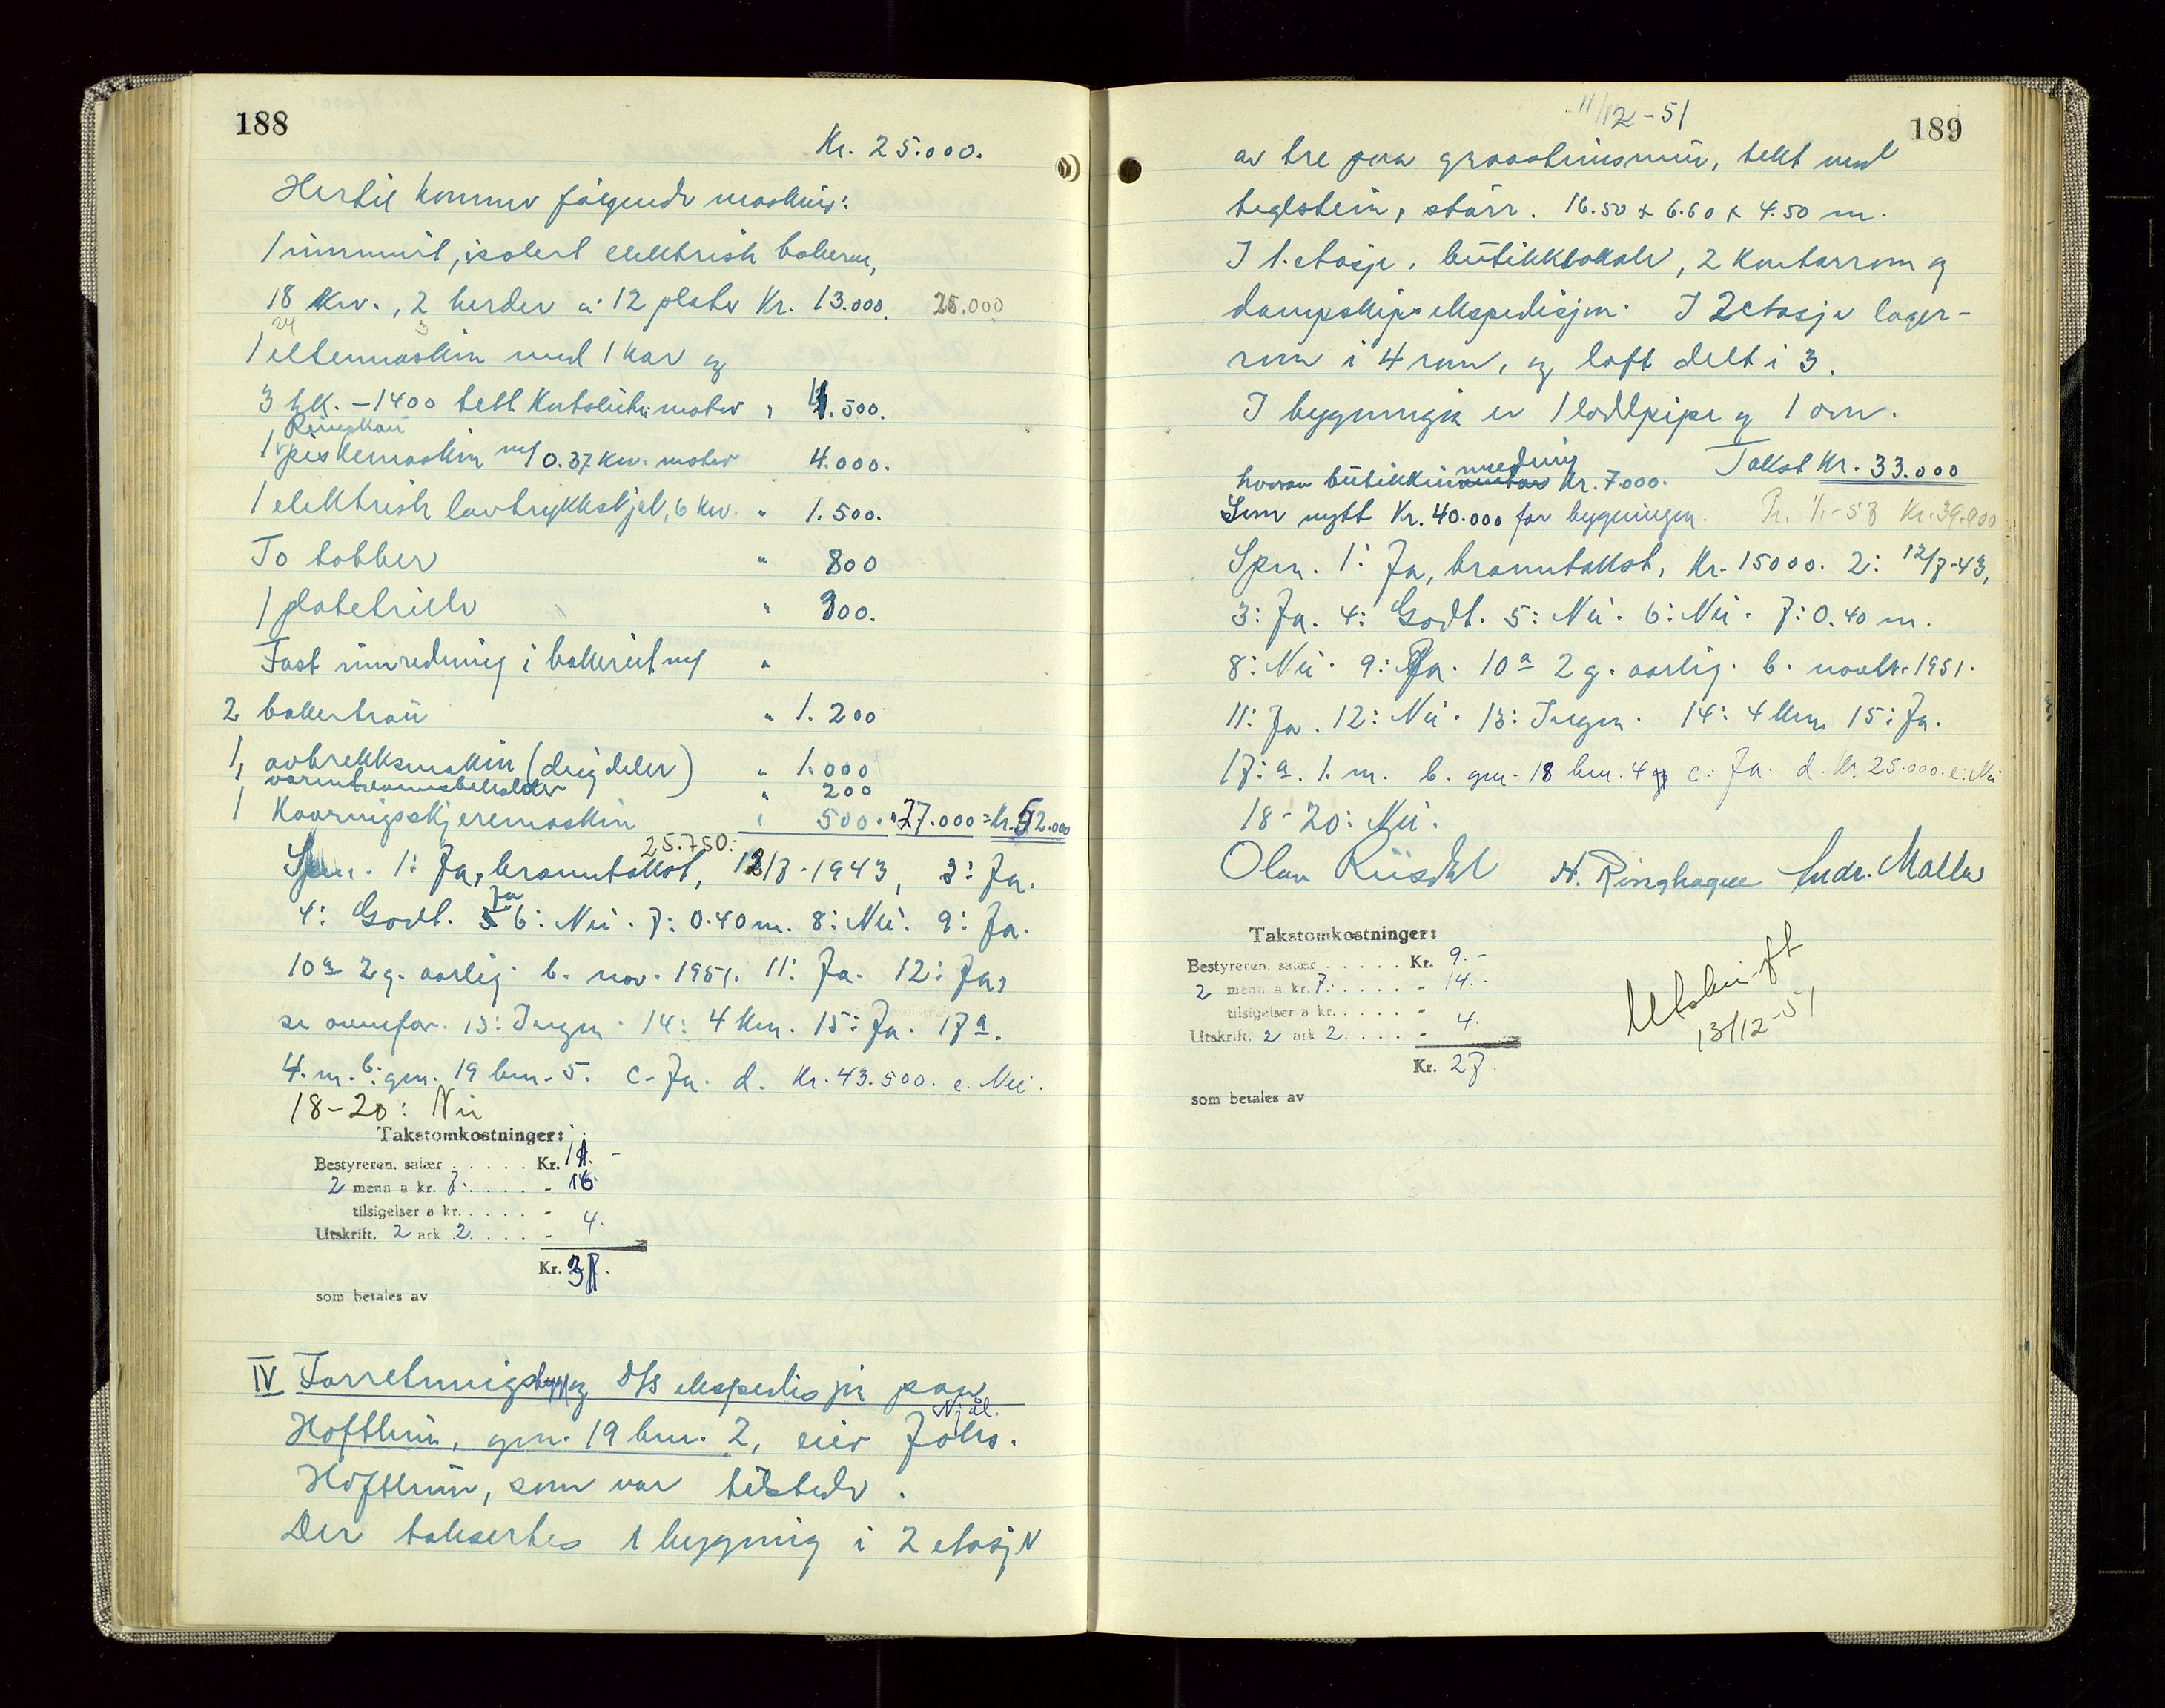 188
Kr. 25.000.
Hertil kommer følgende maskiner:
1 innmurt, isolert elektrisk bakerovn,
18 kw., 2 herder a 12 plater Kr. 13.000. 25.000
24 3
1 eltemaskin med 1 kar og
3 hk. - 1400 tell motor " 4.500.
1 piskemaskin m/ 0.37 kw. motor 4.000.
1 elektrisk lavtrykkskjel, 6 kw. " 1.500.
To tobber " 800
1 platetralle " 300.
Fast innredning i bakeriet m/ "
2 bakertrau " 1.200
1, avtrekksmaskin (deigdeler) " 1.000
1 varmtvannsbeholder " 200
1 Kavringskjeremaskin " 500. " 27.000 = Kr. 52.000
25.750:
Spm. 1: Ja, branntakst, 12/7-1943, 3: Ja.
Ja
4: Godt. 5 6: Nei. 7: 0.40 m. 8: Nei. 9: Ja.
10 a 2 g. aarlig. b. nov. 1951. 11: Ja. 12: Ja,
se ovenfor. 13: Ingen. 14: 4 km. 15: Ja. 17 a.
4. m. b. gnr. 19 bnr. 5. c. Ja. d. Kr. 43.500. e. Nei.
18-20: Nei
Takstomkostninger:
Bestyreren, salær . . . . . Kr. 11. -
2 menn a kr. 7. . . . . - 16
tilsigelser a kr. . . . . -
Utskrift, 2 ark 2. . . . . - 4.
Kr. 31.
som betales av
IV Forretningsbygg og D/S ekspedisjon paa
Njål.
Hoftun, gnr. 19 bnr. 2, eier Johs.
Hoftun, som var tilstede.
Der taksertes 1 bygning i 2 etasjer
11/12-51
189
av tre paa graasteinsmur, tekt med
teglstein, størr. 16.50 x 6.60 x 4.50 m.
I 1. etasje, butikklokale, 2 kontorrom og
dampskipsekspedisjon. I 2 etasje lager-
rom i 4 rom, og loft delt i 3.
I bygningen er 1 loddpipe og 1 ovn.
Takst Kr. 33.000
hvorav butikkinnredning Kr. 7.000.
Som nytt Kr. 40.000 for bygningen. Pr. 1/1-58 Kr. 39.900
Spm. 1: Ja, branntakst, Kr. 15000. 2: 12/7-43,
3: Ja. 4: Godt. 5: Nei. 6: Nei. 7: 0.40 m.
8: Nei. 9: Ja. 10 a 2 g. aarlig. b. novbr. 1951.
11: Ja. 12: Nei. 13: Ingen. 14: 4 km. 15: Ja.
17: a. 1. m. b. gnr. 18 bnr. 4 og c: Ja. d. Kr. 25.000. e: Nei
18-20: Nei.
Olav Riisdal H. Ringhagen Andr. Matle
Takstomkostninger:
Bestyreren, salær . . . . . Kr. 9.-
2 menn a kr. 7. . . . . - 14.-
tilsigelser a kr. . . . . -
Utskrift, 2 ark 2. . . . . - 4.
Kr. 27.
som betales av
Utskrift
13/12-51